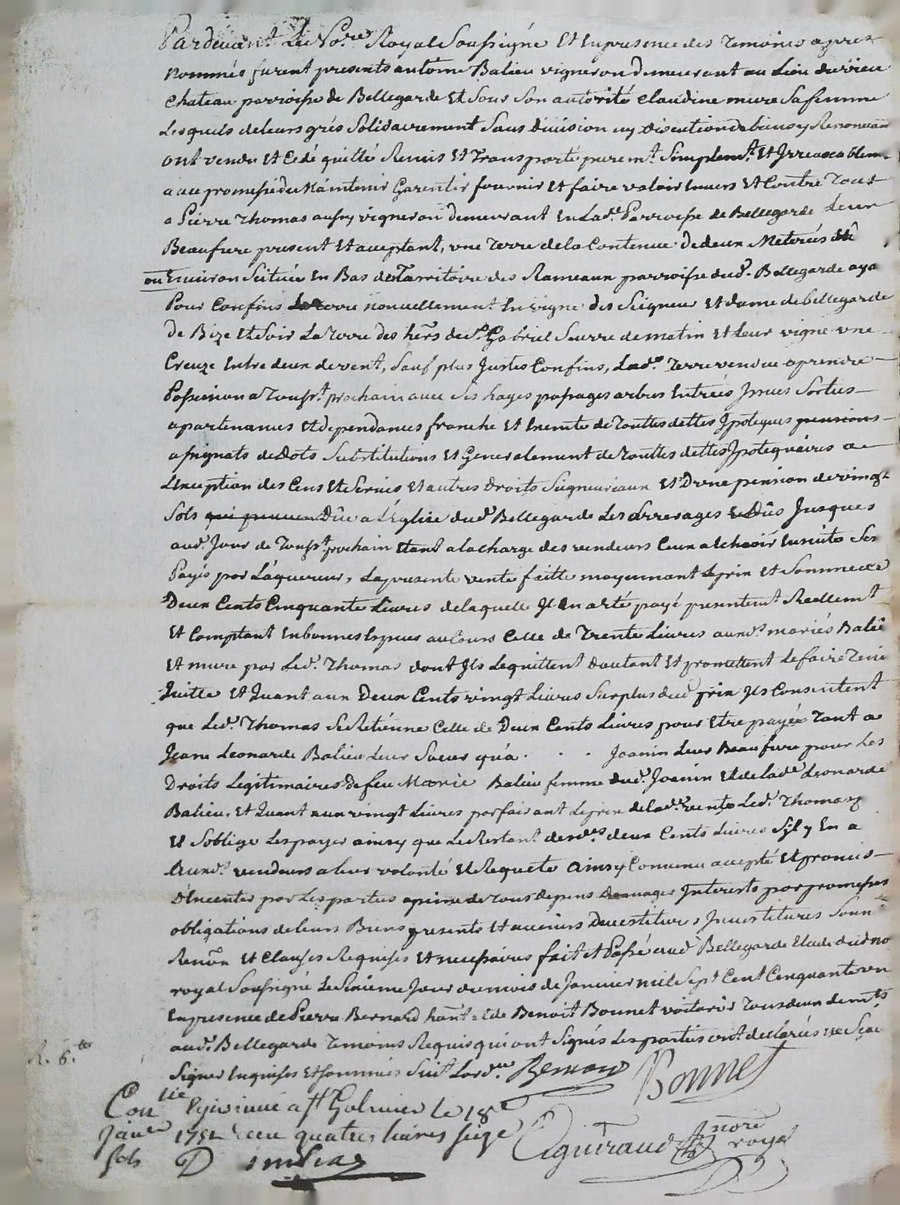 Pardevant Le No.re Royal Soussigné Et en presence des Temoins apres
Nommés furent presents antoine Balieu vigneron demeurant au Lieu du vieu
chateau parroisse de Bellegarde Et Sous Son autorité Claudine mure Sa femme
Lesquels de leurs grés Solidairement Sans division ny Discution de biens y Renoncant
ont vendu Et Cedé quitté Remis Et Transporté purem.t Simplem.t Et Irrevocablem
avec promesse de Maintenir Garentir fournir Et faire valoir Envers Et Contre Tous
a Pierre Thomas aussy vigneron demeurant En Lad.e Parroisse de Bellegarde Leur
Beaufrere present Et aceptant, une Terre de la Contenue De deux Meterés
ou Environ Scituée En Bas du Territoire des Rameaux parroisse dud. Bellegarde aya
Pour Confins terre nouvellement En vigne des Seigneur Et dame de bellegarde
de Bize Et Soir La Terre des hers de Sr Gabriel de matin Et Leur vigne une
Creuze Entre deux de vent, Sauf plus Justes Confins, Lad.e Terre vendue a prendre
Possession a Touss.t prochain avec Ses hayes passages arbres Entrées Issues Sorties
apartenances Et dependances franche Et Exempte de Touttes dettes Ipoteques pensions
assignats de Dots Substitutions Et Generalement de Touttes dettes Ipotequaires a
L'exception des Cens Et Servis Et autres Droits Seigneuriaux Et D'une pension de vingt
Sols Düe a L'Eglise dud. Bellegarde Les arrerages Dûs Jusques
aud. Jour de Touss.t prochain Etant a la charge des vendeurs Ceux a Echeoir Ensuite Ser
Payés par L'aquereur, La presente vente faitte moyennant Le prix Et Somme de
Deux Cents Cinquante Livres de laquelle Il En a Eté payé presentem.t Reellem.t
Et Comptant En bonnes Especes au Cours Celle de Trente Livres aux d.s mariés Balié
Et mure par Led. Thomas dont Ils Le quittent d'autant Et promettent Le faire Tenir
quitte Et Quant aux Deux Cents vingt Livres Surplus dud. prix Ils Consentent
que Led. Thomas Se Retienne Celle de Deux Cents Livres pour Etre payée Tant a
Jean Leonarde Balieu Leur Saeur qu'a . . . Joanin Leur Beaufrere pour Les
Droits Legitimaires de feu Marie Balieu femme dud. Joanin Et de lad.e Leonarde
Balieu, Et Quant aux vingt Livres parfaisant Le prix de lad.e vente Led. Thomas
Et S'oblige Les payer ainsy que Le Restant desd.s deux Cents Livres S'il y En a
Aux d.s vendeurs a leur volonté Et Requete Ainsy Convenu accepté Et promis
D'executer par Les parties a peine de Tous Depens Domages Interets par promesses
obligations de leurs Biens presents Et avenirs Devestitures, Investitures Soum.
Renon Et Clauses Requises Et necessaires fait Et Passé aud. Bellegarde Etude dud. no
royal Soussigné Le Sixieme Jour du mois de Janvier mil Sept Cent Cinquante un
En presence de Pierre Bernard Et de Benoit Bonnet voiturier Tous deux dem.ts
aud. Bellegarde Temoins Requis qui ont Signés Les parties ont declarés ne Scav
Signer Enquises Et Sommées Suiv.t L'ord.ce Bernard Bonnet
R. 6.to
Con lle a St Galmier le 18e
Janv.e 1751 quatre livres seize
sols D
Aguiraud no.re royal